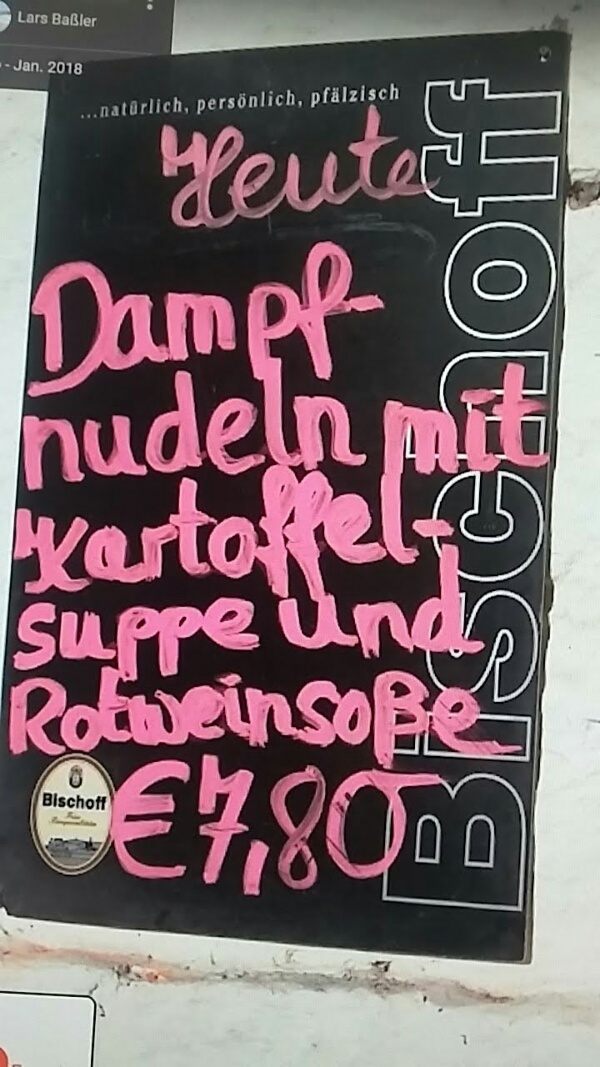 Lars Baßler
- Jan. 2018
...natürlich, persönlich, pfälzisch
Heute
Dampf-
nudeln mit
Kartoffel-
suppe und
Rotweinsoße
€7,80
Bischoff
Bischoff